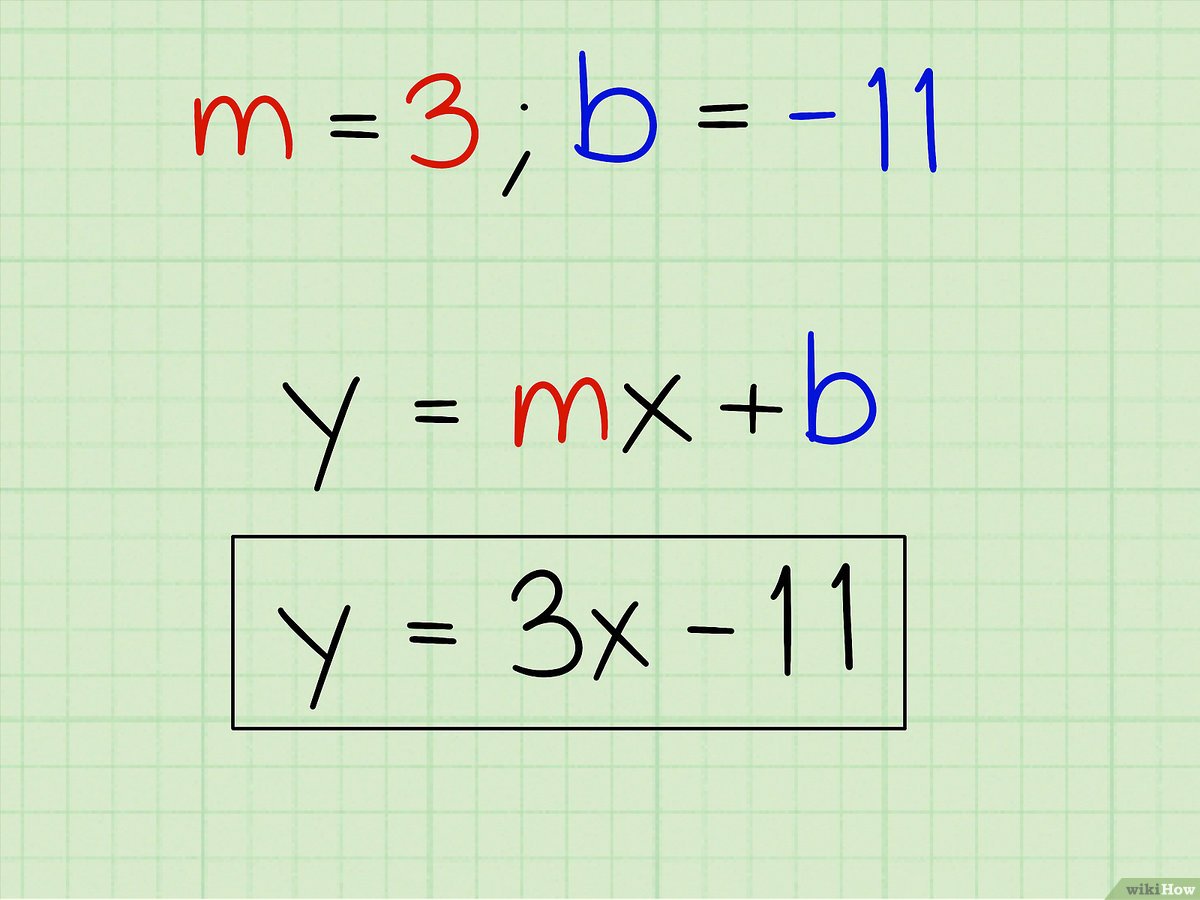 m = 3 ; b = -11
y = mx + b
y = 3x - 11
wikiHow